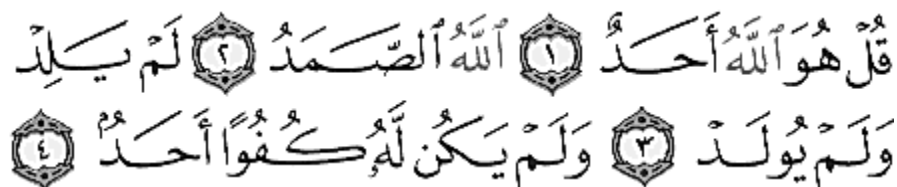 قُلۡ هُوَ ٱللَّهُ أَحَدٌ ١ ٱللَّهُ ٱلصَّمَدُ ٢ لَمۡ يَلِدۡ
وَلَمۡ يُولَدۡ ٣ وَلَمۡ يَكُن لَّهُۥ كُفُوًا أَحَدُۢ ٤